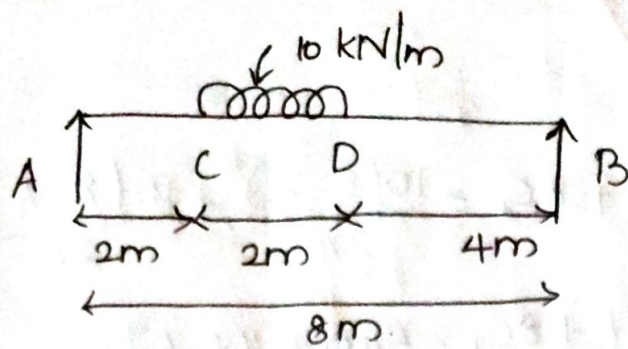 10 kN/m
A C D B
2m 2m 4m
8m.